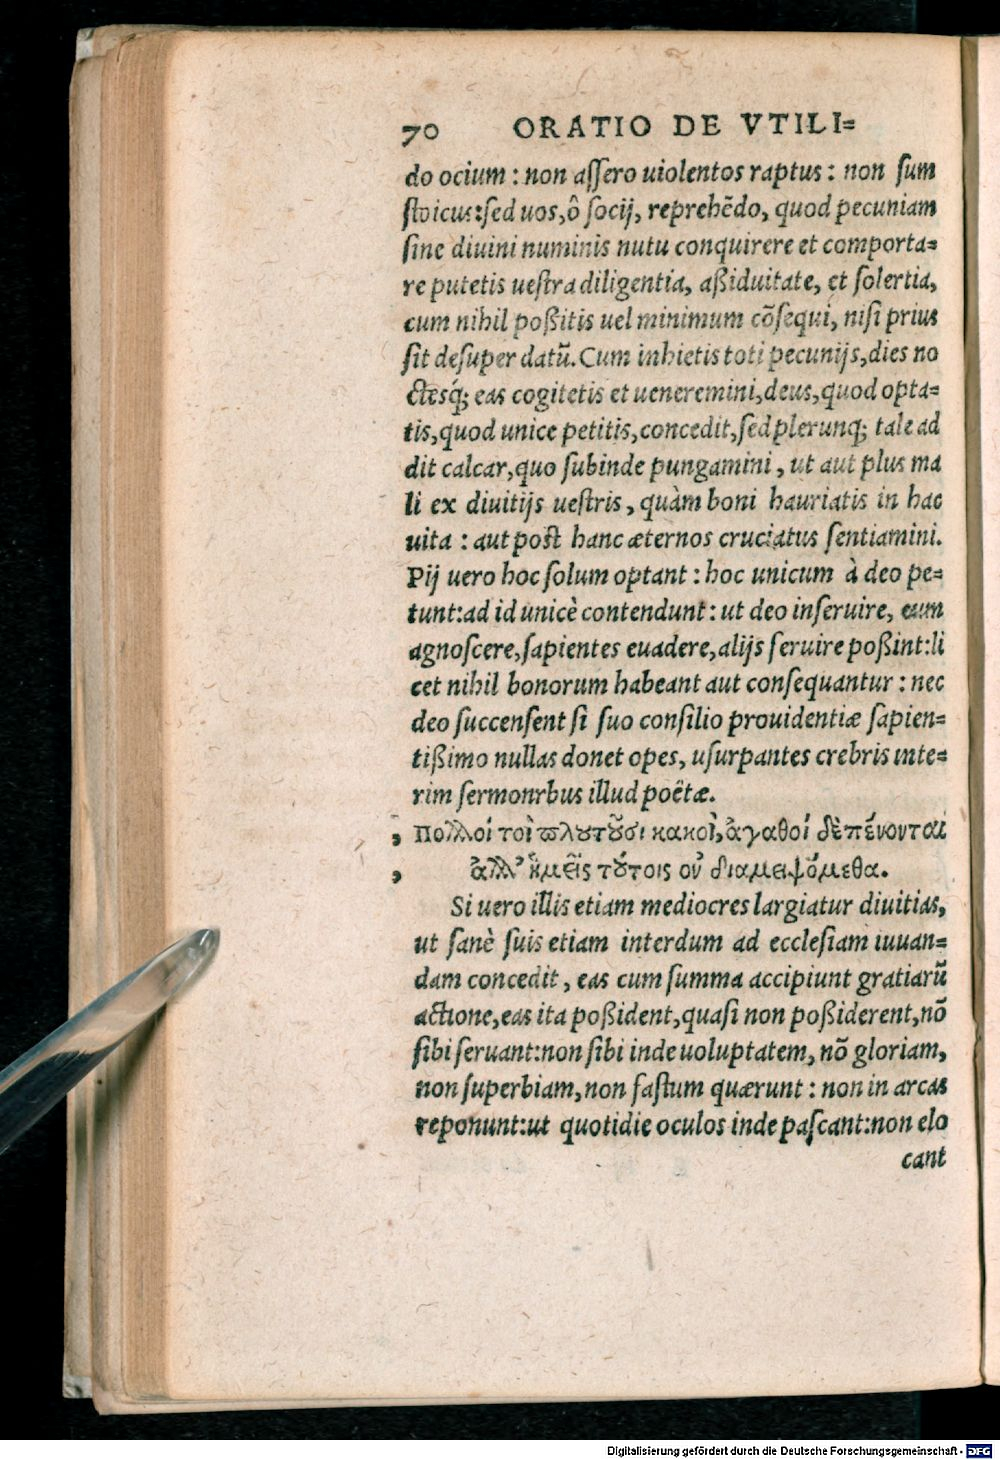 70 ORATIO DE VTILI=
do ocium : non aſſero uiolentos raptus : non ſum
ſtoicus:ſed uos,ô ſocij, reprehẽdo, quod pecuniam
ſine diuini numinis nutu conquirere et comporta=
re putetis ueſtra diligentia, aßiduitate, et ſolertia,
cum nihil poßitis uel minimum cõſequi, niſi prius
ſit deſuper datũ. Cum inhietis toti pecunijs,dies no
ctesq́; eas cogitetis et ueneremini,deus,quod opta=
tis,quod unice petitis,concedit,ſed plerunq; tale ad
dit calcar,quo ſubinde pungamini, ut aut plus ma
li ex diuitijs ueſtris, quàm boni hauriatis in hac
uita : aut poſt hanc æternos cruciatus ſentiamini.
Pij uero hoc ſolum optant : hoc unicum à deo pe=
tunt:ad id unicè contendunt : ut deo inſeruire, eum
agnoſcere,ſapientes euadere,alijs ſeruire poßint:li
cet nihil bonorum habeant aut conſequantur : nec
deo ſuccenſent ſi ſuo conſilio prouidentiæ ſapien=
tißimo nullas donet opes, uſurpantes crebris inte=
rim ſermonrbus illud poëtæ.
, Πολλοί τοὶ πλȣτȣ̃σι κακοὶ, ἀγαθοί δὲ πένονται
, ἀλλ’ ἡμεῖς τȣ́τοις οὐ διαμειψόμεθα.
Si uero illis etiam mediocres largiatur diuitias,
ut ſanè ſuis etiam interdum ad eccleſiam iuuan=
dam concedit, eas cum ſumma accipiunt gratiarũ
actione,eas ita poßident,quaſi non poßiderent,nõ
ſibi ſeruant:non ſibi inde uoluptatem, nõ gloriam,
non ſuperbiam,non faſtum quærunt : non in arcas
reponunt:ut quotidie oculos inde paſcant:non elo
cant
Digitalisierung gefördert durch die Deutsche Forschungsgemeinschaft - DFG